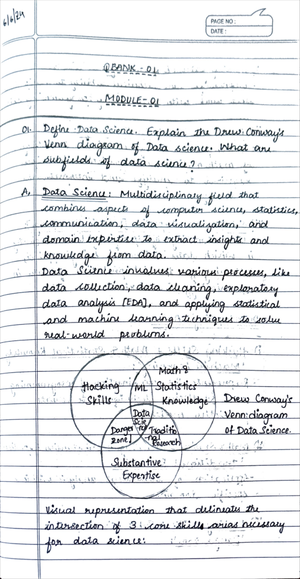 6/6/24
PAGE NO.:
DATE:
QBANK-01
MODULE-01
01. Define Data Science. Explain the Drew Conway's
Venn diagram of Data science. What are
subfields of data science?
A. Data Science: Multidisciplinary field that
combines aspects of computer science, statistics,
communication, data visualization, and
domain expertise to extract insights and
knowledge from data.
Data Science involves various processes, like
data collection, data cleaning, exploratory
data analysis [EDA], and applying statistical
and machine learning techniques to solve
real-world problems.
Hacking
Skills
ML
Math &
Statistics
Knowledge
Data
Scie
nce
Danger
zone!
Traditio
nal
Research
Substantive
Expertise
Drew Conway's
Venn diagram
of Data Science.
Visual representation that delineates the
intersection of 3 core skills areas necessary
for data science: